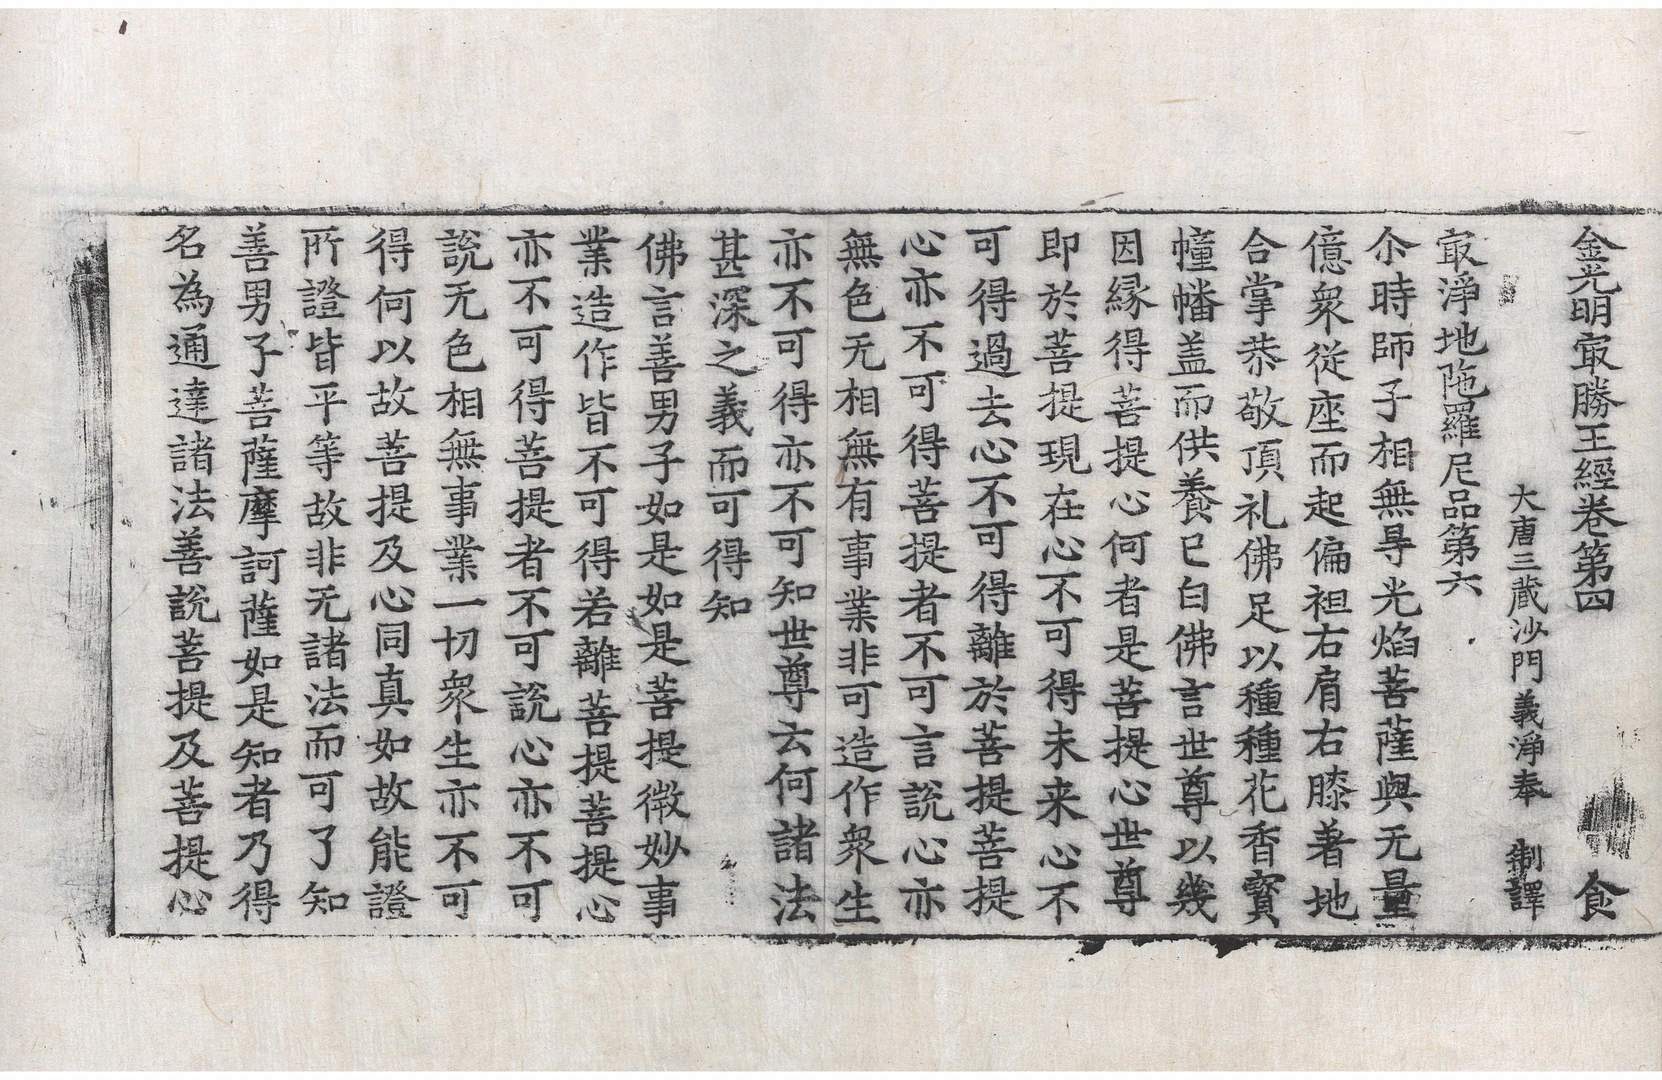 金光明㝡勝王經卷第四 食
大唐三藏沙門義淨奉 制譯
㝡淨地陁羅尼品第六
尒時師子相無㝵光焰菩薩與无量
億衆從座而起偏袒右肩右膝著地
合掌恭敬頂礼佛足以種種花香寶
幢幡盖而供養已白佛言世尊以幾
因緣得菩提心何者是菩提心世尊
即於菩提現在心不可得未来心不
可得過去心不可得離於菩提菩提
心亦不可得菩提者不可言說心亦
無色无相無有事業非可造作衆生
亦不可得亦不可知世尊云何諸法
甚深之義而可得知
佛言善男子如是如是菩提微妙事
業造作皆不可得若離菩提菩提心
亦不可得菩提者不可說心亦不可
說无色相無事業一切衆生亦不可
得何以故菩提及心同真如故能證
所證皆平等故非无諸法而可了知
善男子菩薩摩訶薩如是知者乃得
名為通達諸法善說菩提及菩提心